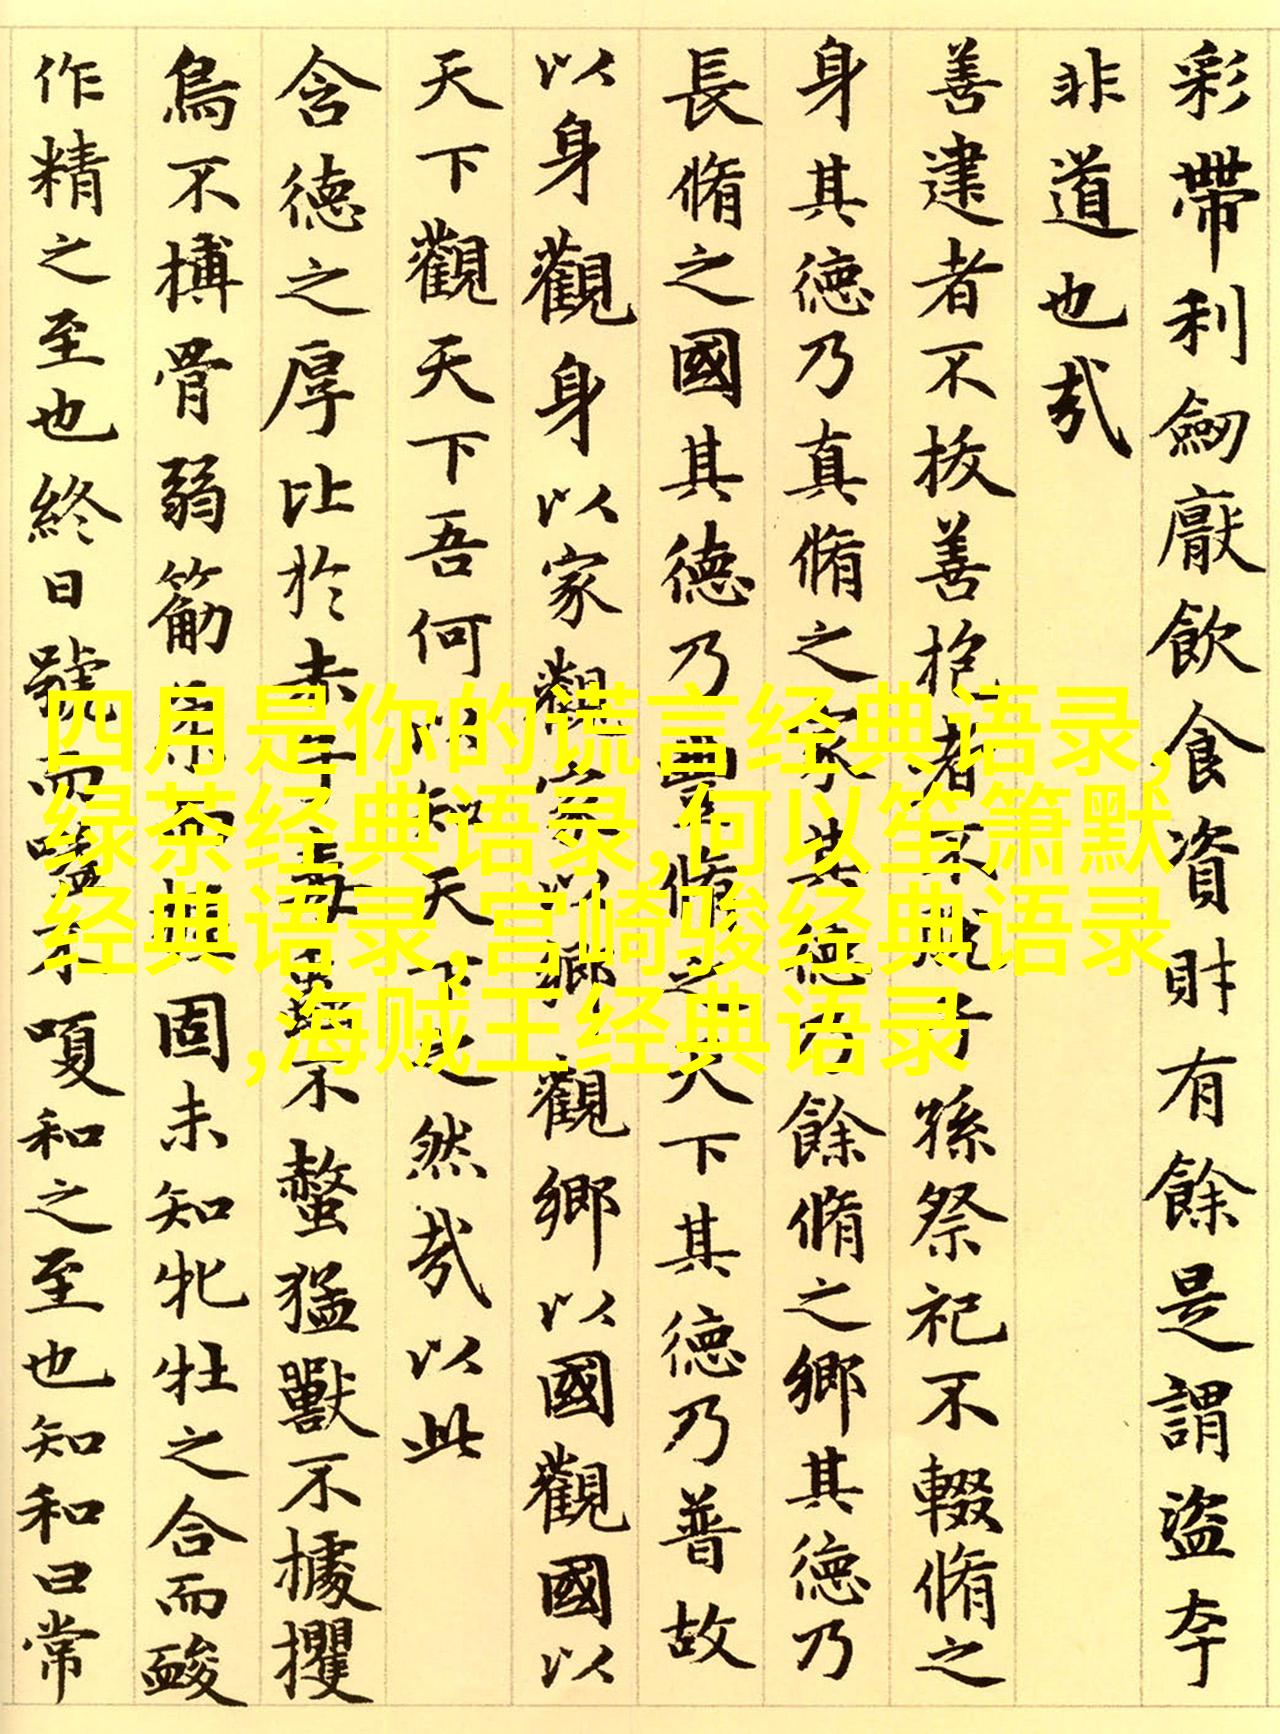 彩帶利劔厭飲食資財有餘是謂盜夸
非道也哉
善建者不拔善抱者不脫子孫祭祀不輟脩之
身其德乃真脩之家其德乃餘脩之鄉其德乃
長脩之國其德乃豐脩之天下其德乃普故
以身觀身以家觀家以鄉觀鄉以國觀國以
天下觀天下吾何以知天下之然哉以此
含德之厚比於赤子毒蟲不螫猛獸不據攫
鳥不搏骨弱筋柔而握固未知牝牡之合而酸
作精之至也終日號而嗌不嗄和之至也知和曰常
四月是你的谎言经典语录,
绿茶经典语录,何以笙箫默
经典语录,宫崎骏经典语录
,海贼王经典语录